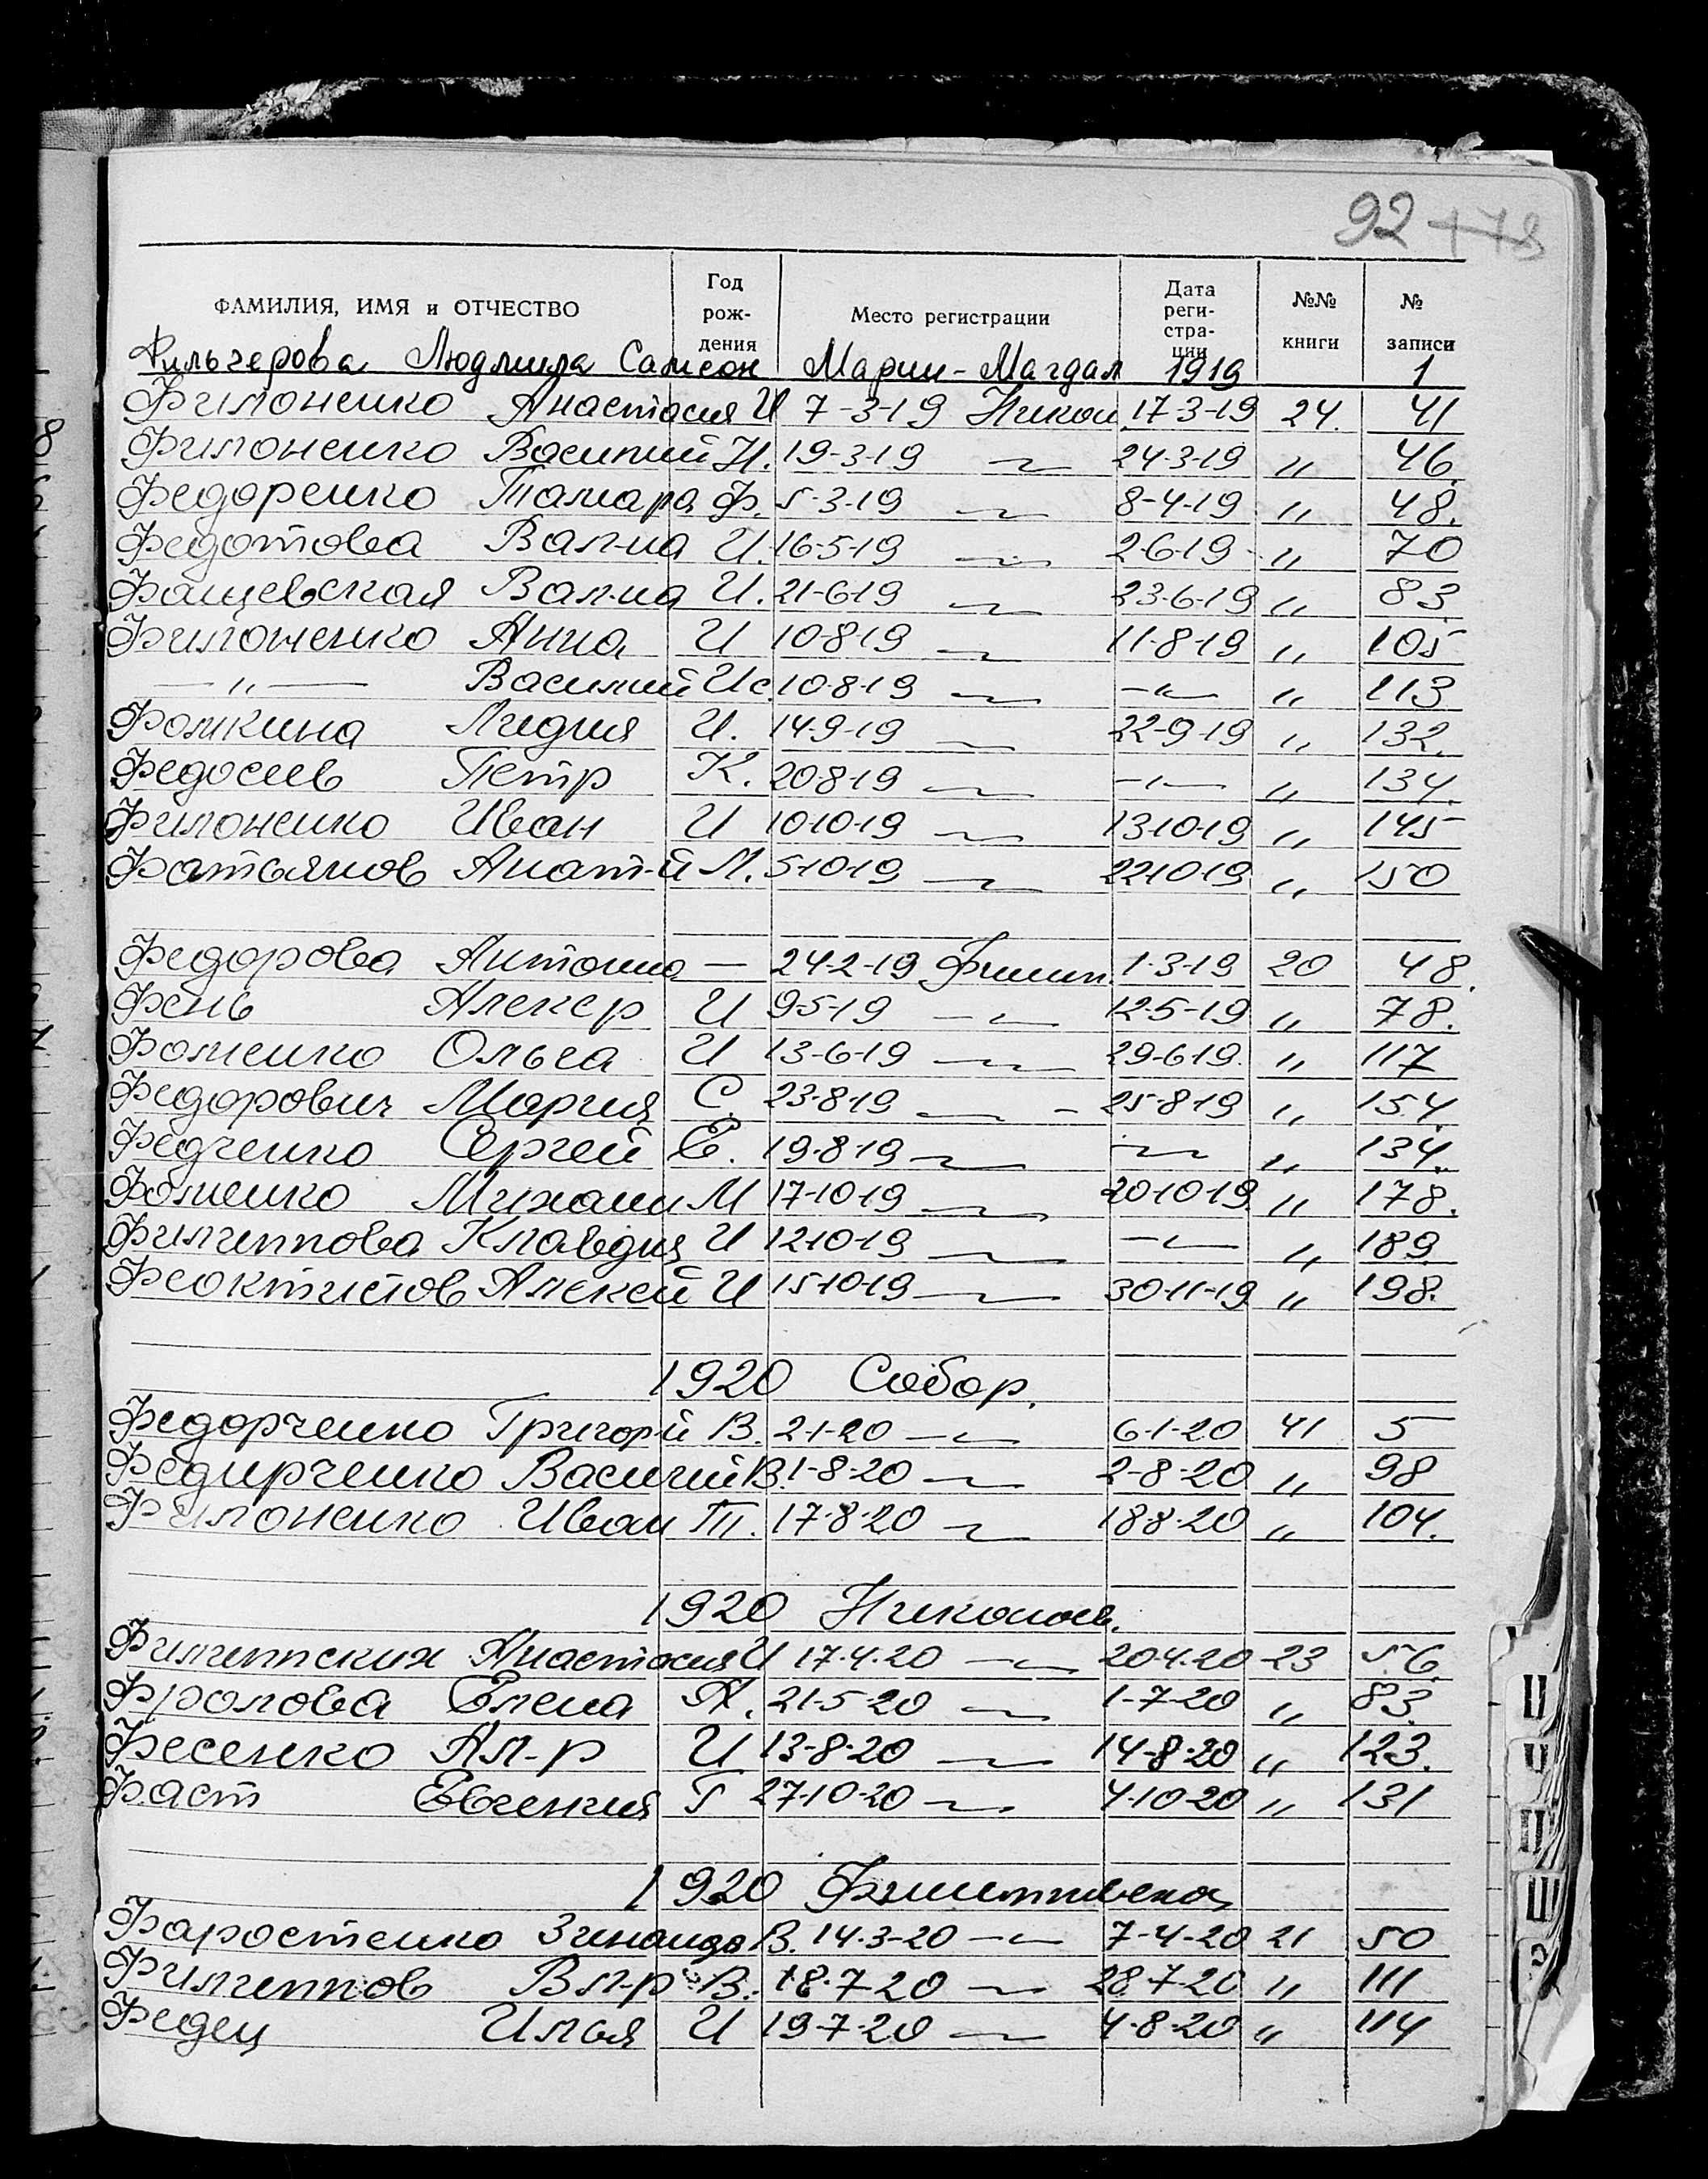 92 178
ФАМИЛИЯ, ИМЯ и ОТЧЕСТВО Год рождения Место регистрации Дата регистрации №№ книги № записи
Фильчерова Людмила Самсон Марии-Магдал 1919 1
Филоненко Анастасия И 7-3-19 Никол 17-3-19 24. 41
Филоненко Василий И. 19-3-19 〃 24-3-19 〃 46
Федоренко Тамара Ф. 5-3-19 〃 8-4-19 〃 48.
Федотова Вал-на И. 16-5-19 〃 2-6-19 〃 70
Фащевская Вал-на И. 21-6-19 〃 23-6-19 〃 83
Филоненко Анна И 10-8-19 〃 11-8-19 〃 105
—〃— Василий Ис. 10-8-19 〃 —〃— 〃 113
Фомкина Лидия И. 14-9-19 〃 22-9-19 〃 132.
Федосеев Петр К. 20-8-19 〃 —〃— 〃 134.
Филоненко Иван И 10-10-19 〃 13-10-19 〃 145
Фатьянов Анат-й М. 5-10-19 〃 22-10-19 〃 150
Федорова Антонина — 24-2-19 Филип. 1-3-19 20 48.
Фень Алек-р И 9-5-19 〃 12-5-19 〃 78.
Фоменко Ольга И 13-6-19 〃 29-6-19. 〃 117
Федорович Мария С. 23-8-19 〃 25-8-19 〃 154
Федченко Сергей Е. 19-8-19 〃 —〃— 〃 134.
Фоменко Михаил М 17-10-19 〃 20-10-19. 〃 178.
Филиппова Клавдия И 12-10-19 〃 —〃— 〃 189
Феоктистов Алексей И 15-10-19 〃 30-11-19 〃 198.
1920 Собор.
Федорченко Григор-й В. 2-1-20 〃 6-1-20 41 5
Федирченко Василий В. 1-8-20 〃 2-8-20 〃 98
Филоненко Иван Т. 17-8-20 〃 18-8-20 〃 104.
1920 Николаев.
Филиппских Анастасия И 17.4.20 〃 20.4.20 23 56
Фролова Елена А. 21-5-20 〃 1-7-20 〃 83
Фесенко Ал-р И 13-8-20 〃 14-8-20 〃 123.
Фаст Евгения Г 27-10-20 〃 4-10-20 〃 131
1920 Филипповская
Фаростенко Зинаида В. 14.3-20 〃 7-4-20 21 50
Филиппов Вл-р В. 18.7-20 〃 28.7-20 〃 111
Федец Илья И 19-7-20 〃 4-8-20 〃 114